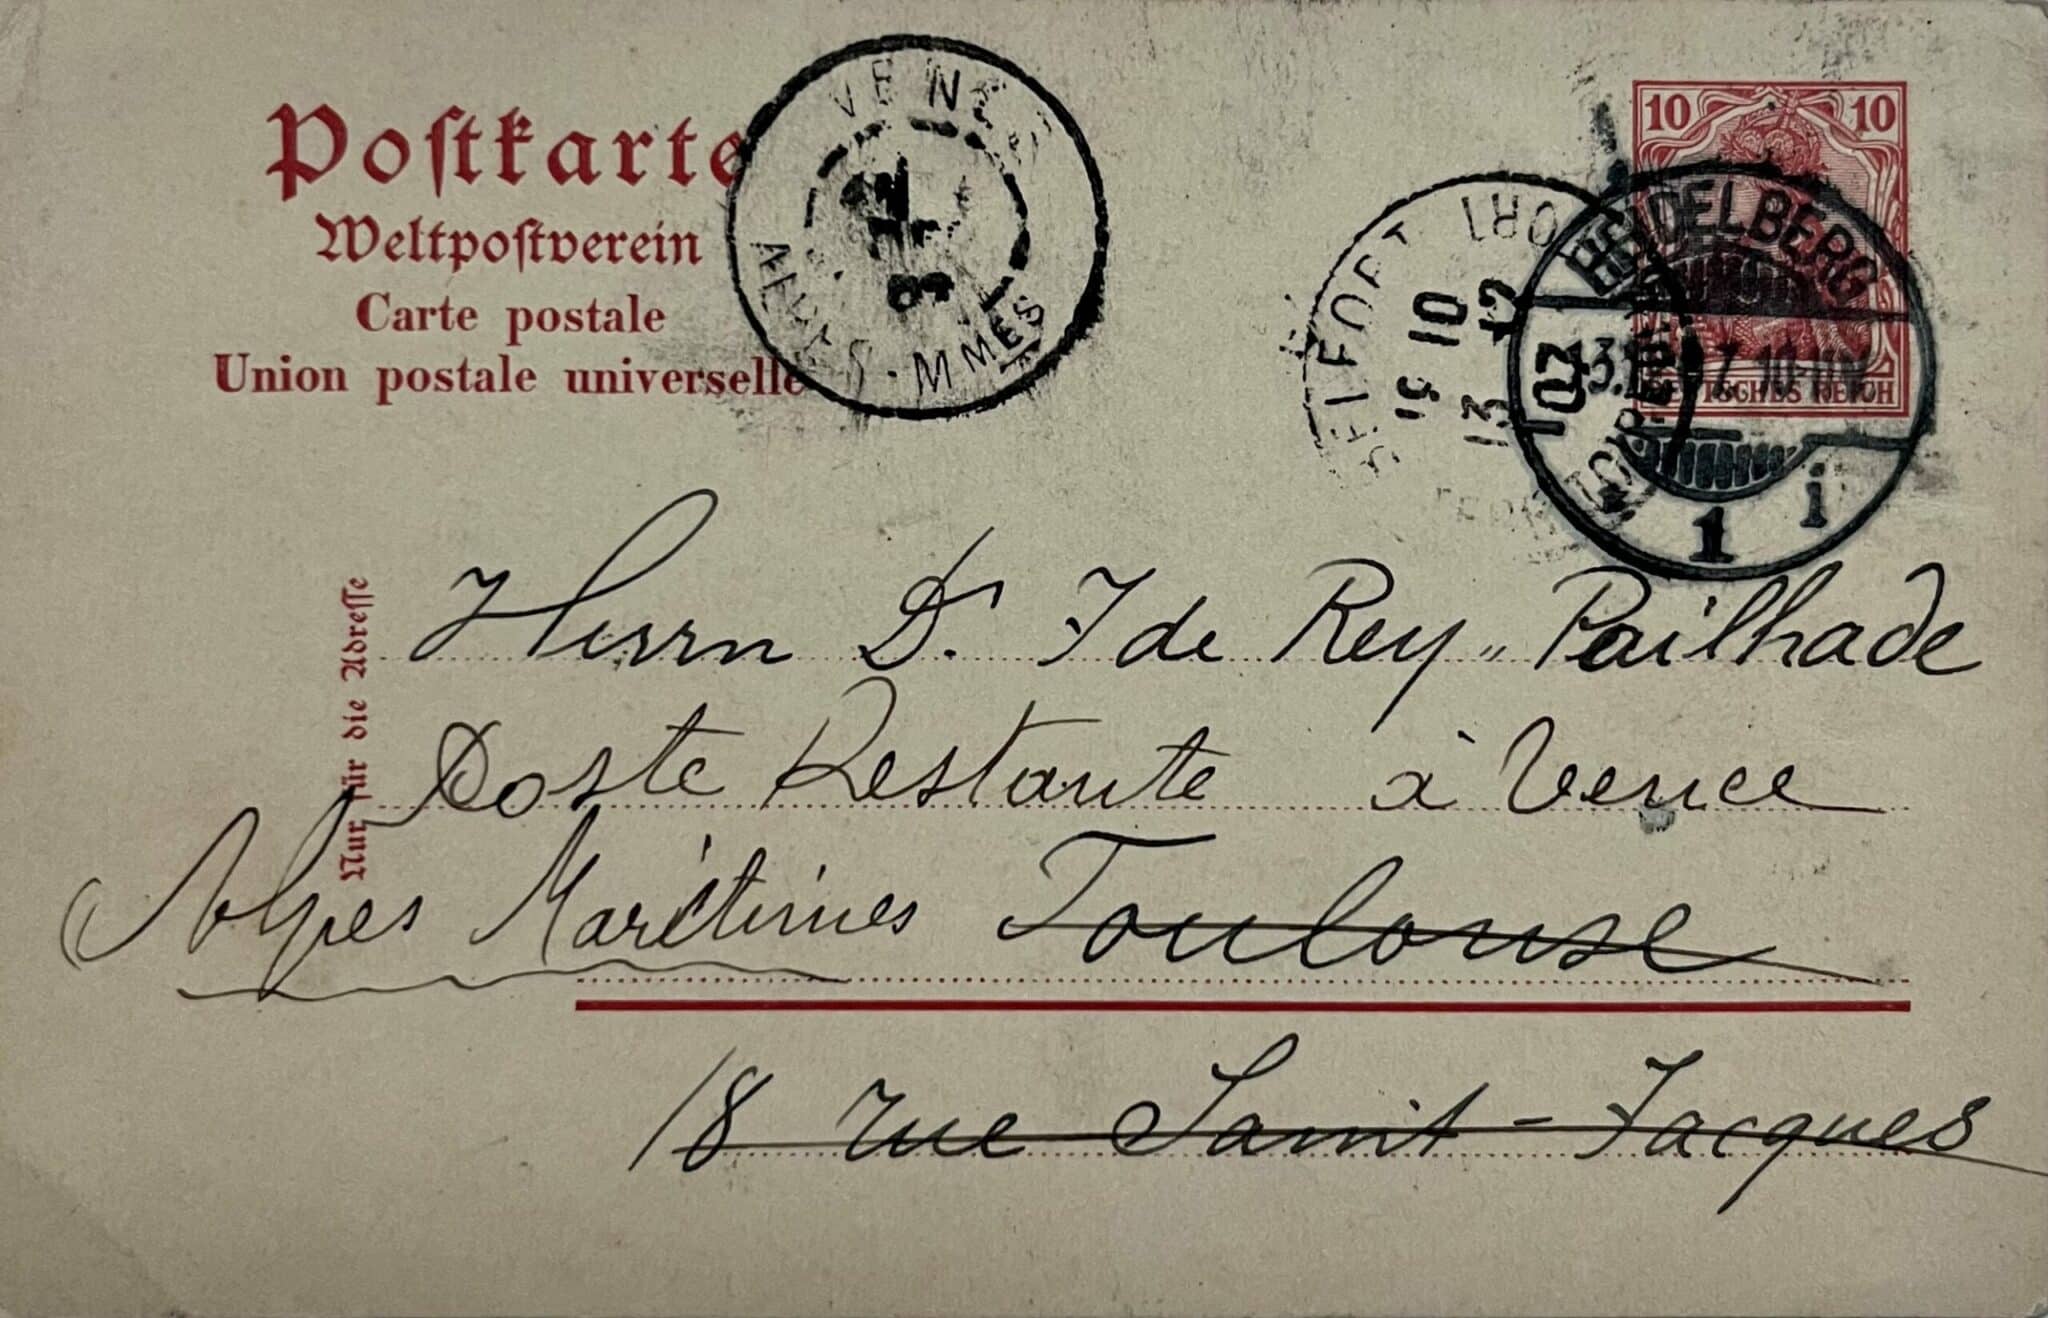 Postkarte
Weltpostverein
Carte postale
Union postale universelle
VENCE
ALPES-MMES
10 10
DEUTSCHES REICH
HEIDELBERG
1 i
BELFORT
19 10
13 12
07
Nur für die Adresse
Herrn Dr. J de Rey-Pailhade
Poste Restante à Vence
Alpes Maritimes Toulouse
18 rue Saint-Jacques